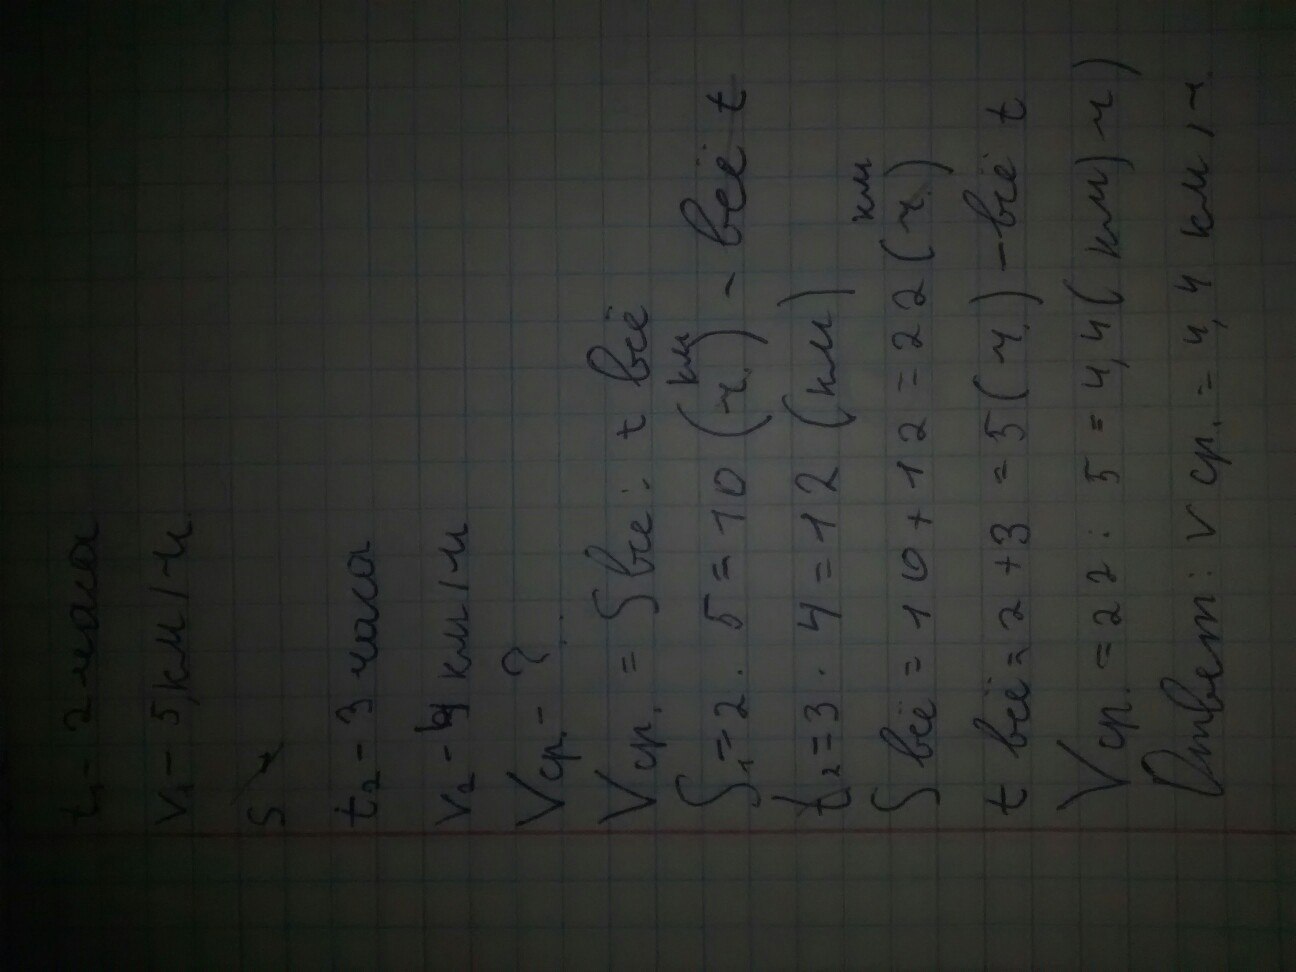 t₁ - 2 часа
v₁ - 5 км/ч
S
t₂ - 3 часа
v₂ - 4 км/ч
Vср. - ?
Vср. = S всё : t всё
S₁ = 2 · 5 = 10 (ч.) км - всё t
t₂ = 3 · 4 = 12 (км)
S всё = 10 + 12 = 22 (ч.) км
t всё = 2 + 3 = 5 (ч.) - всё t
Vср. = 22 : 5 = 4,4 (км/ч)
Ответ: v ср. = 4,4 км/ч